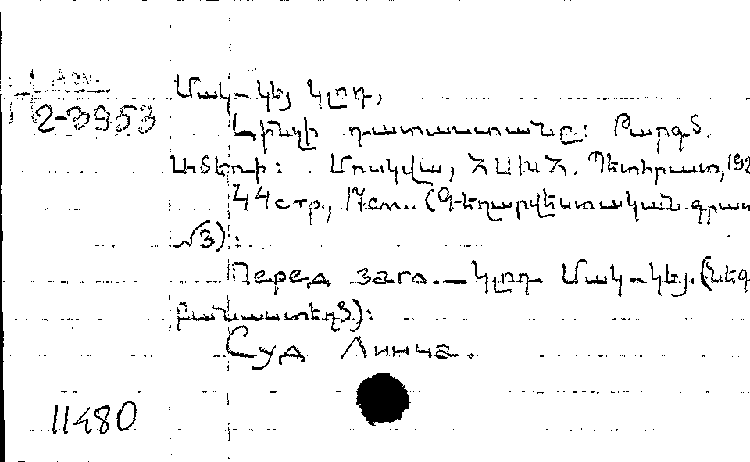 Арм.
2-3953
Մակ-կեյ Կլոդ,
Լինչի դատաստանը: Թարգմ.
Մոսկվա, ՀՍԽՀ. Պետհրատ, 192
44стр., 17см.. (Գեղարվեստական գրատ
№3):
Перед загл. – Կլոդ Մակ-կեյ. (նեգ
բանաստեղծ):
Суд Линча.
11480